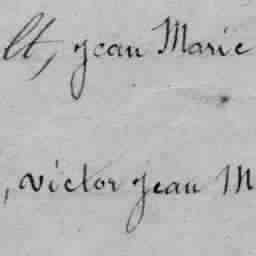 lt, Jean Marie
, victor Jean M